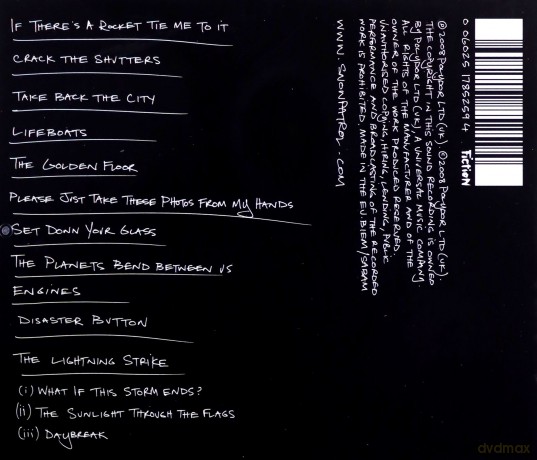 IF THERE'S A ROCKET TIE ME TO IT
CRACK THE SHUTTERS
TAKE BACK THE CITY
LIFEBOATS
THE GOLDEN FLOOR
PLEASE JUST TAKE THESE PHOTOS FROM MY HANDS
SET DOWN YOUR GLASS
THE PLANETS BEND BETWEEN US
ENGINES
DISASTER BUTTON
THE LIGHTNING STRIKE
(i) WHAT IF THIS STORM ENDS?
(ii) THE SUNLIGHT THROUGH THE FLAGS
(iii) DAYBREAK
0 06025 1785259 4 Fiction
℗ 2008 POLYDOR LTD (UK). © 2008 POLYDOR LTD (UK).
THE COPYRIGHT IN THIS SOUND RECORDING IS OWNED
BY POLYDOR LTD (UK). A UNIVERSAL MUSIC COMPANY
ALL RIGHTS OF THE MANUFACTURER AND OF THE
OWNER OF THE WORK PRODUCED RESERVED.
UNAUTHORISED COPYING, HIRING, LENDING, PUBLIC
PERFORMANCE AND BROADCASTING OF THE RECORDED
WORK IS PROHIBITED. MADE IN THE EU. BIEM/SABAM
WWW.SNOWPATROL.COM
dvdmax